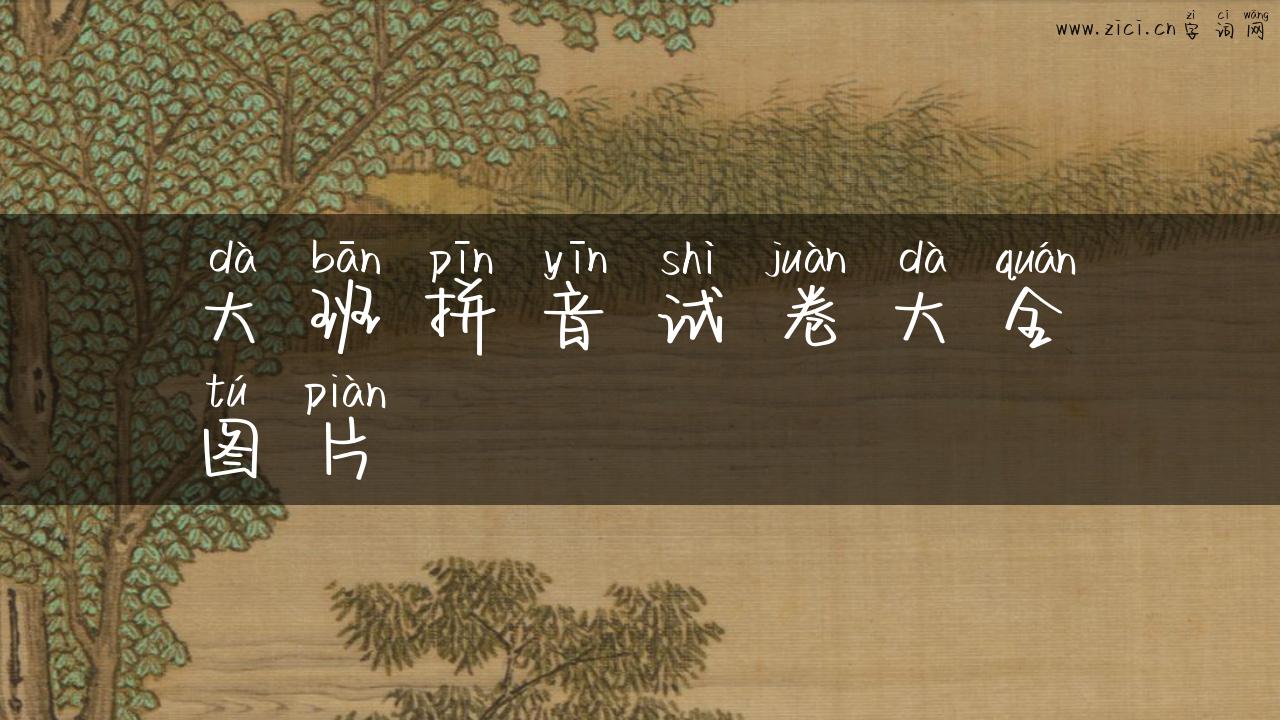 zì cí wǎng
www.zici.cn字词网
dà bān pīn yīn shì juàn dà quán
大班拼音试卷大全
tú piàn
图片